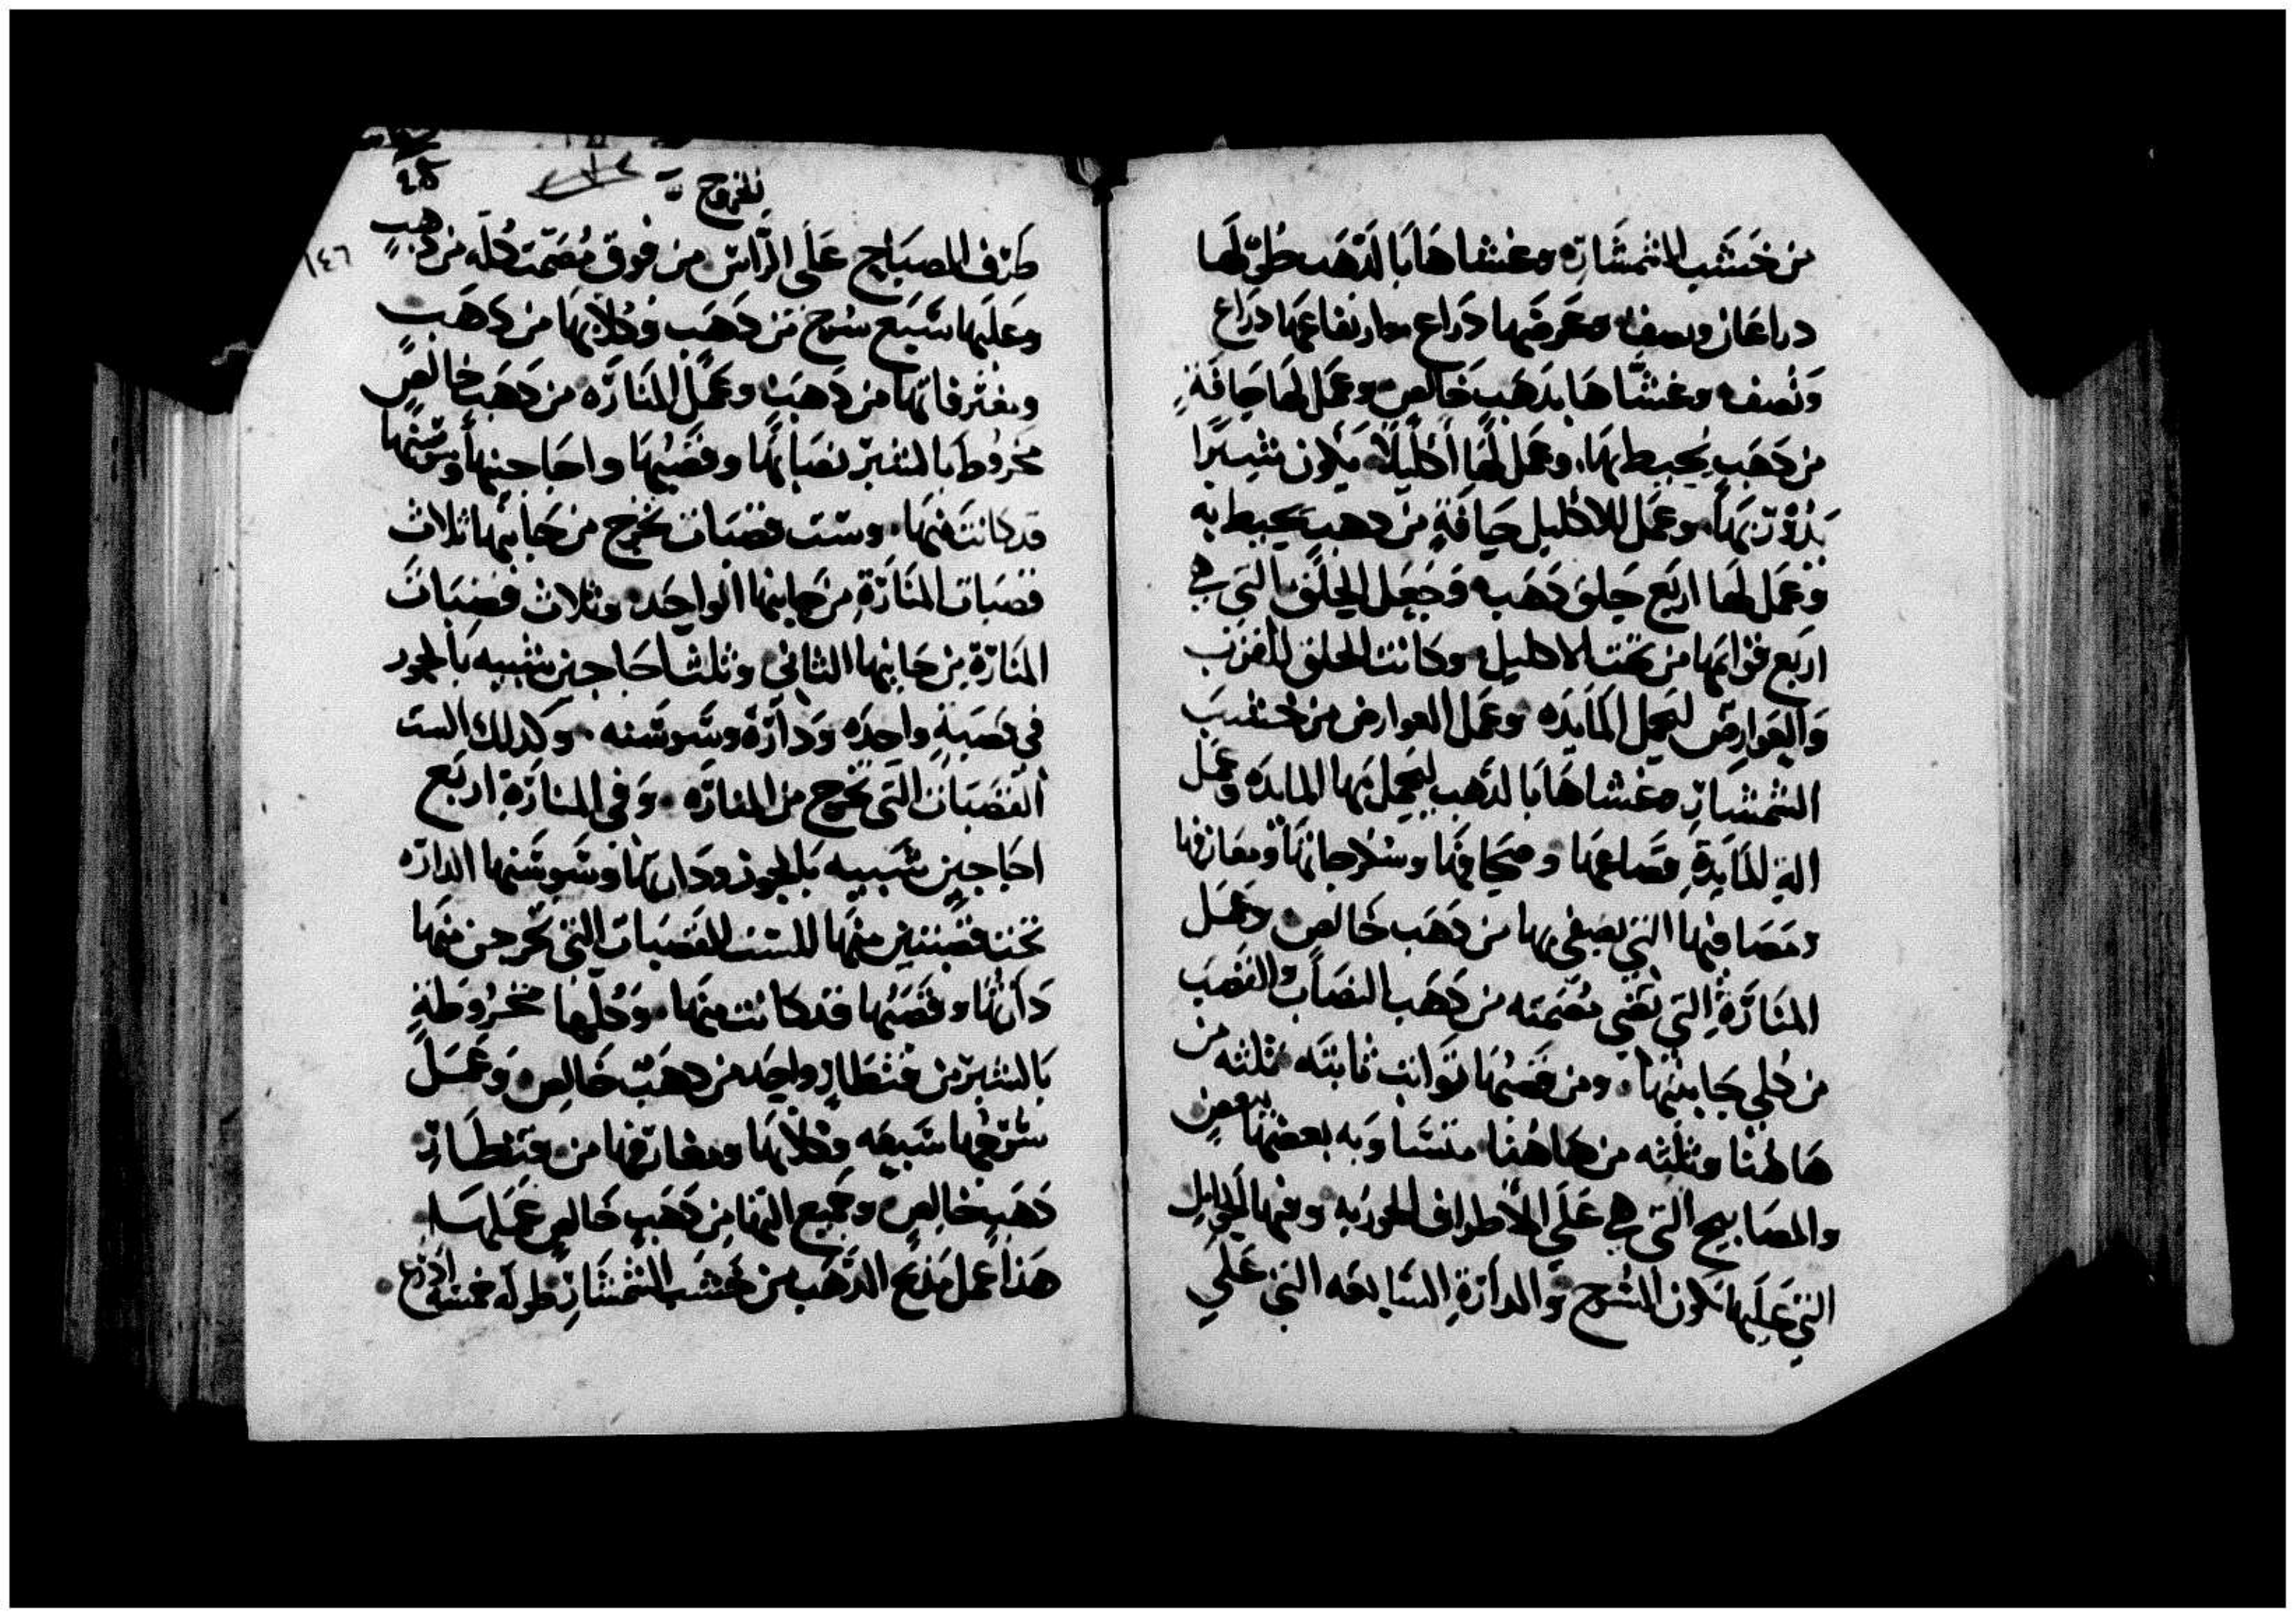 من خشب الشمشار وغشاها بالذهب طولها
دراعان ونصف وعرضها دراع وارتفاعها دراع
ونصف وغشاها بذهب خالص وعمل لها حافة
من ذهب يحيط بها وعمل لها اكليلاً يكون شبيرًا
بدورتها وعمل للاكليل حافة من دهب يحيط به
وعمل لها اربع حلق دهب وجعل الحلق التي في
اربع قوايمها من تحت الاكليل وكانت الحلق للغرب
والعوارض لتحمل المايده وعمل العوارض من خشب
الشمشار وغشاها بالذهب ليحمل بها المايده وعمل
الة المايدة قصاعها وصحافها وسكرجاتها ومغارفها
ومصافيها التي يصفي بها من دهب خالص وعمل
المنارة التي تضي مصمته من دهب النصاب والقصب
من كلي جانبيها ومن قصبها توابت ثابته ثلثه من
هاهنا وثلثه من هاهنا متساويه بعضها ببعض
والمصابيح التي هي على الاطراف الجوزيه ومنها الحوامل
التي عليها تكون السرج والدارة السابعه التي علي
الخروج
٩٥
١٤٦
طرف المصباح على الراس من فوق مصمت كله من دهب
وعليها سبع سرج من دهب وكلابها من دهب
ومغرفاتها من دهب وعمل المناره من دهب خالص
مخروط بالشبر نصابها وقصبها واجاجينها وسوسنها
قد كانت منها وست قصبات تخرج من جانبها ثلاث
قصبات المنارة من جانبها الواحد وثلاث قصبات
المنارة من جانبها الثاني وثلث اجاجين شبيه بالجوز
في قصبة واحده ودارة وسوسنه وكدلك الست
القصبات التي تخرج من المناره وفي المنارة اربع
اجاجين شبيه بالجوز وداراتها وسوسنها الداره
تحت قصبتين منها للست القصبات التي تخرج من منها
داراتها وقصبها قد كانت منها وكلها مخروطة
بالشبر من قنطار واحد من دهب خالص وعمل
سرجها سبعه وكلابها ومغارفها من قنطار
دهب خالص وجميع اليتها من دهب خالص عملها
هذا عمل مذبح الدهب من خشب الشمشار طوله خمسة ادرع